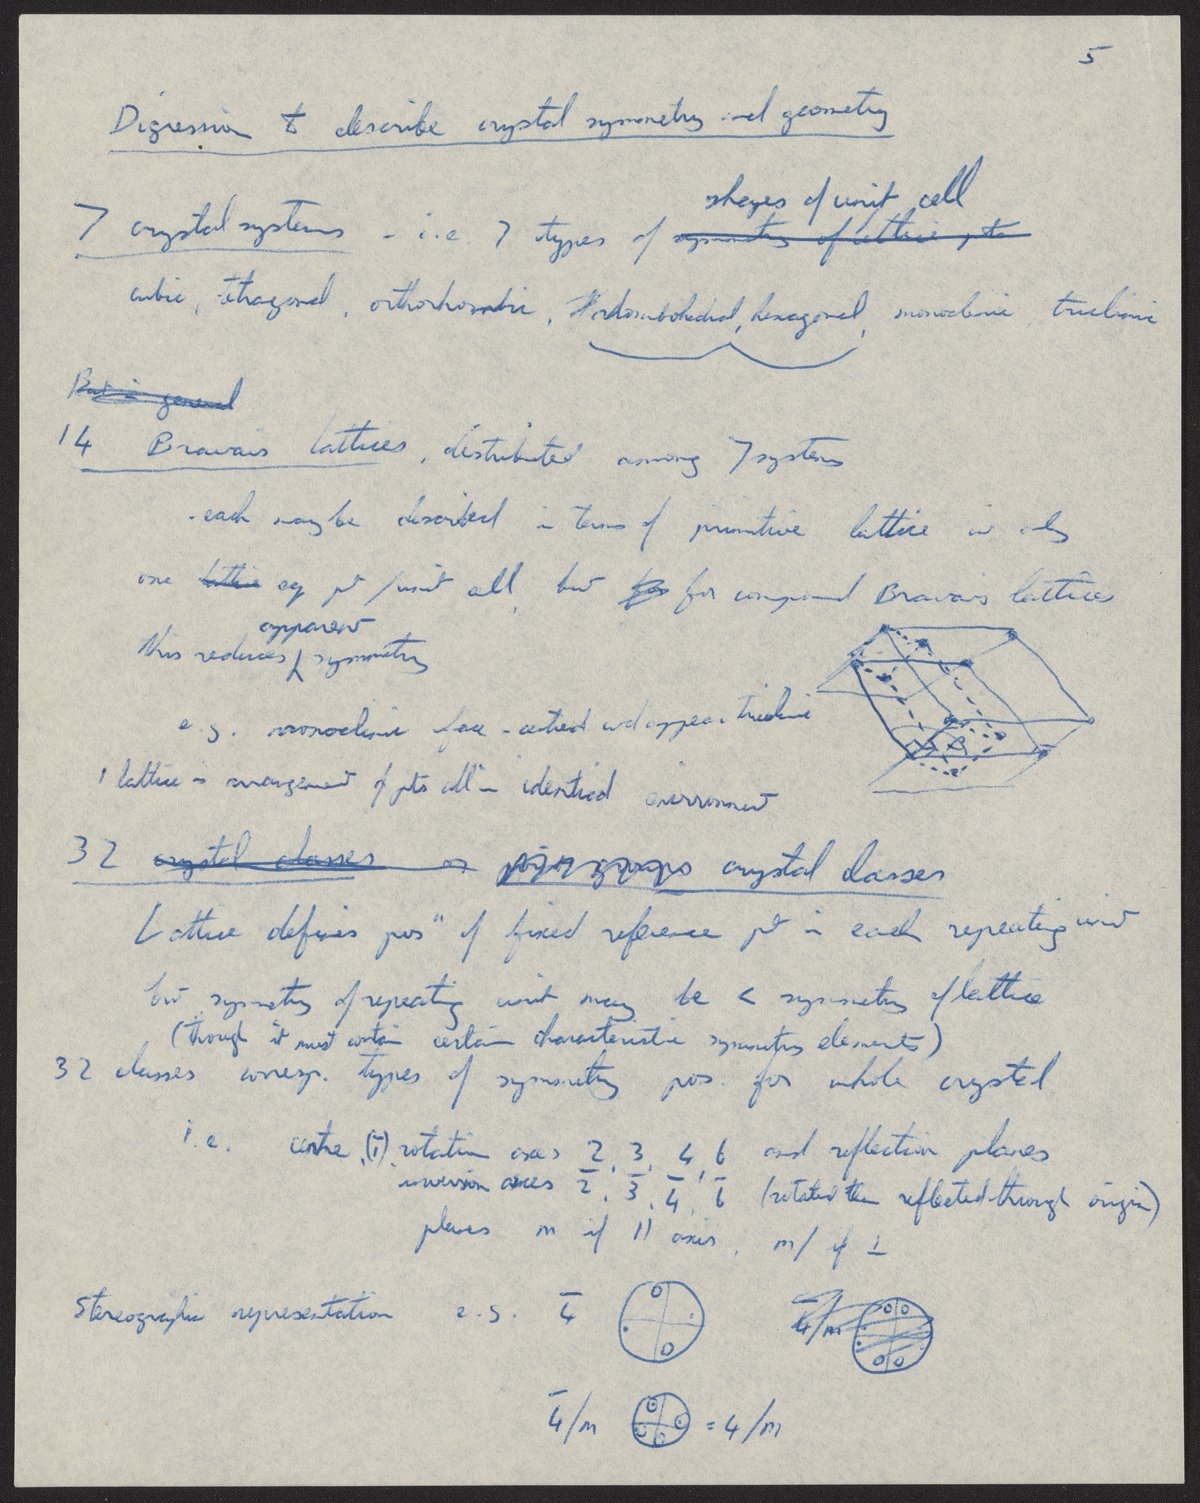 5
Digression to describe crystal symmetry and geometry
shapes of unit cell
7 crystal systems - i.e. 7 types of symmetry of lattice pts
cubic, tetragonal, orthorhombic, rhombohedral, hexagonal, monoclinic, triclinic
But in general
14 Bravais lattices, distributed among 7 systems
- each may be described in terms of primitive lattice w only
one lattice eq pt /unit cell, but for compound Bravais lattices
apparent
this reduces symmetry
e.g. monoclinic face-centred wd appear triclinic
1 lattice = arrangement of pts all in identical environment
32 crystal classes or point groups crystal classes
Lattice defines posn of fixed reference pt in each repeating unit
but symmetry of repeating unit may be < symmetry of lattice
(though it must contain certain characteristic symmetry elements)
32 classes corresp. types of symmetry pos. for whole crystal
i.e. centre, (1̄), rotation axes 2, 3, 4, 6 and reflection planes
inversion axes 2̄, 3̄, 4̄, 6̄ (rotated then reflected through origin)
planes m if || axis, m/ if ⊥
Stereographic representation e.g. 4̄ 4̄/m
4̄/m = 4/m